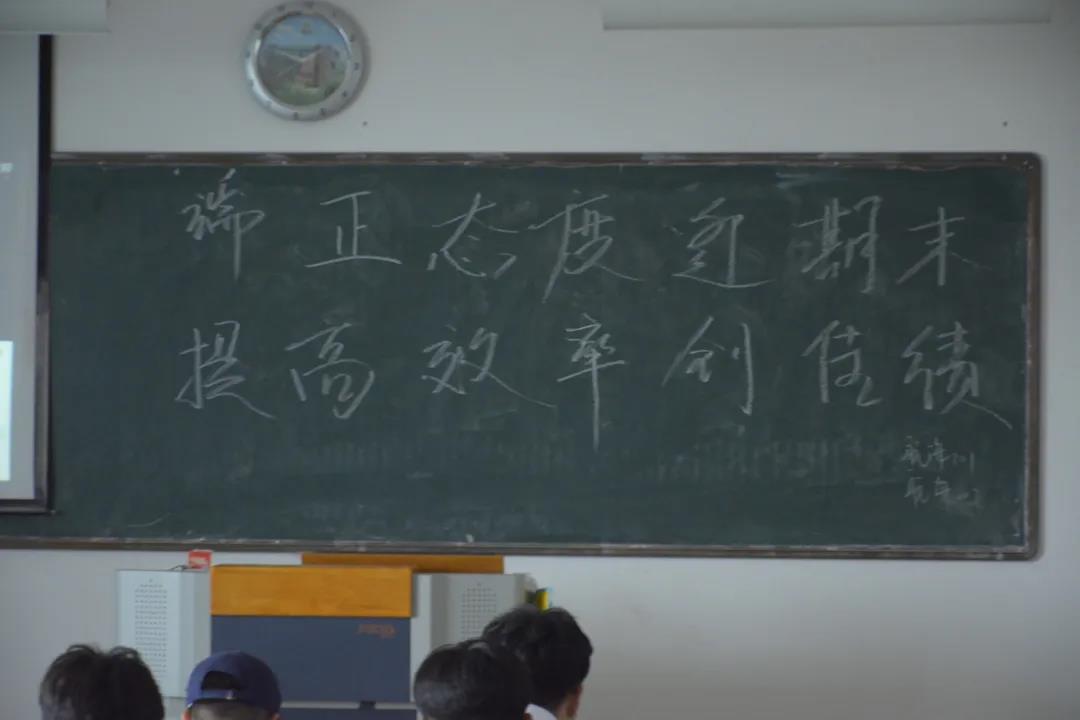 端正态度迎期末
提高效率创佳绩